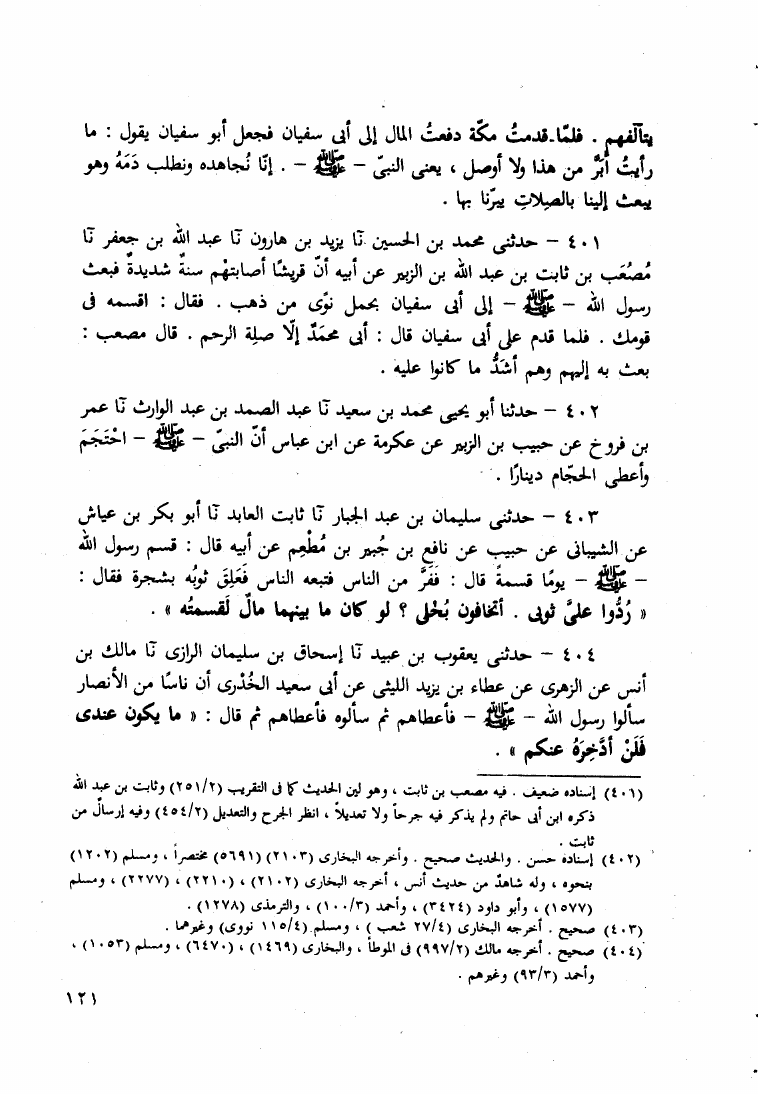 يتألّفهم . فلمّا قدمتُ مكّة دفعتُ المال إلى أبى سفيان فجعل أبو سفيان يقول : ما
رأيتُ أبَرَّ من هذا ولا أوصل ، يعنى النبىّ – ﷺ – . إنّا نُجاهده ونطلب دَمَهُ وهو
يبعث إلينا بالصِلاتِ يبرّنا بها .
٤٠١ – حدثنى محمد بن الحسين نَا يزيد بن هارون نَا عبد الله بن جعفر نَا
مُصْعَب بن ثابت بن عبد الله بن الزبير عن أبيه أنّ قريشًا أصابتهْم سنةٌ شديدةٌ فبعث
رسول الله – ﷺ – إلى أبى سفيان بحمل نوًى من ذهب . فقال : اقسمه فى
قومك . فلما قدم على أبى سفيان قال : أبى محمَدٌ إلّا صلِة الرحم . قال مصعب :
بعث به إليهم وهم أشدُّ ما كانوا عليه .
٤٠٢ – حدثنا أبو يحيى محمد بن سعيد نَا عبد الصمد بن عبد الوارث نَا عمر
بن فروخ عن حبيب بن الزبير عن عكرمة عن ابن عباس أنّ النبىّ – ﷺ – احْتَجَمَ
وأعطى الحجّام دينارًا .
٤٠٣ – حدثنى سليمان بن عبد الجبار نَا ثابت العابد نَا أبو بكر بن عياش
عن الشيبانى عن حبيب عن نافع بن جُبير بن مُطْعِم عن أبيه قال : قسم رسول الله
– ﷺ – يومًا قسمةً قال : فَفَرَّ من الناس فتبعه الناس فَعَلِقَ ثوبُه بشجرة فقال :
« رُدُّوا علىَّ ثوبى . أتخافون بُخْلى ؟ لو كان ما بينهما مالٌ لَقسمتُه » .
٤٠٤ – حدثنى يعقوب بن عبيد نَا إسحاق بن سليمان الرازى نَا مالك بن
أنس عن الزهرى عن عطاء بن يزيد الليثى عن أبى سعيد الخُدْرى أن ناسًا من الأنصار
سألوا رسول الله – ﷺ – فأعطاهم ثم سألوه فأعطاهم ثم قال : « ما يكون عندى
فَلَنْ أدَّخِرَهُ عنكم » .
(٤٠١) إسناده ضعيف . فيه مصعب بن ثابت ، وهو لين الحديث كما فى التقريب (٢٥١/٢) وثابت بن عبد الله
ذكره ابن أبى حاتم ولم يذكر فيه جرحاً ولا تعديلاً ، انظر الجرح والتعديل (٤٥٤/٢) وفيه إرسالٌ من
ثابت .
(٤٠٢) إسنادة حسن . والحديث صحيح . وأخرجه البخارى (٢١٠٣) (٥٦٩١) مختصراً ، ومسلم (١٢٠٢)
بنحوه ، وله شاهدٌ من حديث أنس ، أخرجه البخارى (٢١٠٢) ، (٢٢١٠) ، (٢٢٧٧) ، ومسلم
(١٥٧٧) ، وأبو داود (٣٤٢٤) ، وأحمد (١٠٠/٣) ، والترمذى (١٢٧٨) .
(٤٠٣) صحيح . أخرجه البخارى (٢٧/٤ شعب ) ، ومسلم (١١٥/٤ نووى) وغيرهما .
(٤٠٤) صحيح . أخرجه مالك (٩٩٧/٢) فى الموطأ ، والبخارى (١٤٦٩) ، (٦٤٧٠) ، ومسلم (١٠٥٣) ،
وأحمد (٩٣/٣) وغيرهم .
١٢١